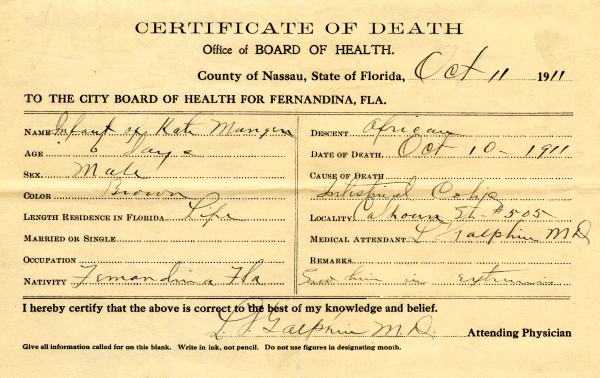 CERTIFICATE OF DEATH
Office of BOARD OF HEALTH.
County of Nassau, State of Florida, Oct 11 1911
TO THE CITY BOARD OF HEALTH FOR FERNANDINA, FLA.
NAME Infant of Kate
AGE 6 Days
SEX. Male
COLOR Brown
LENGTH RESIDENCE IN FLORIDA Life
MARRIED OR SINGLE
OCCUPATION
NATIVITY Fernandina Fla
DESCENT African
DATE OF DEATH. Oct 10 - 1911
CAUSE OF DEATH
Intestinal Colic
LOCALITY Calhoun St. #505
MEDICAL ATTENDANT L Galphin M D
REMARKS
Saw him in
I hereby certify that the above is correct to the best of my knowledge and belief.
Galphin M.D. Attending Physician
Give all information called for on this blank. Write in ink, not pencil. Do not use figures in designating month.